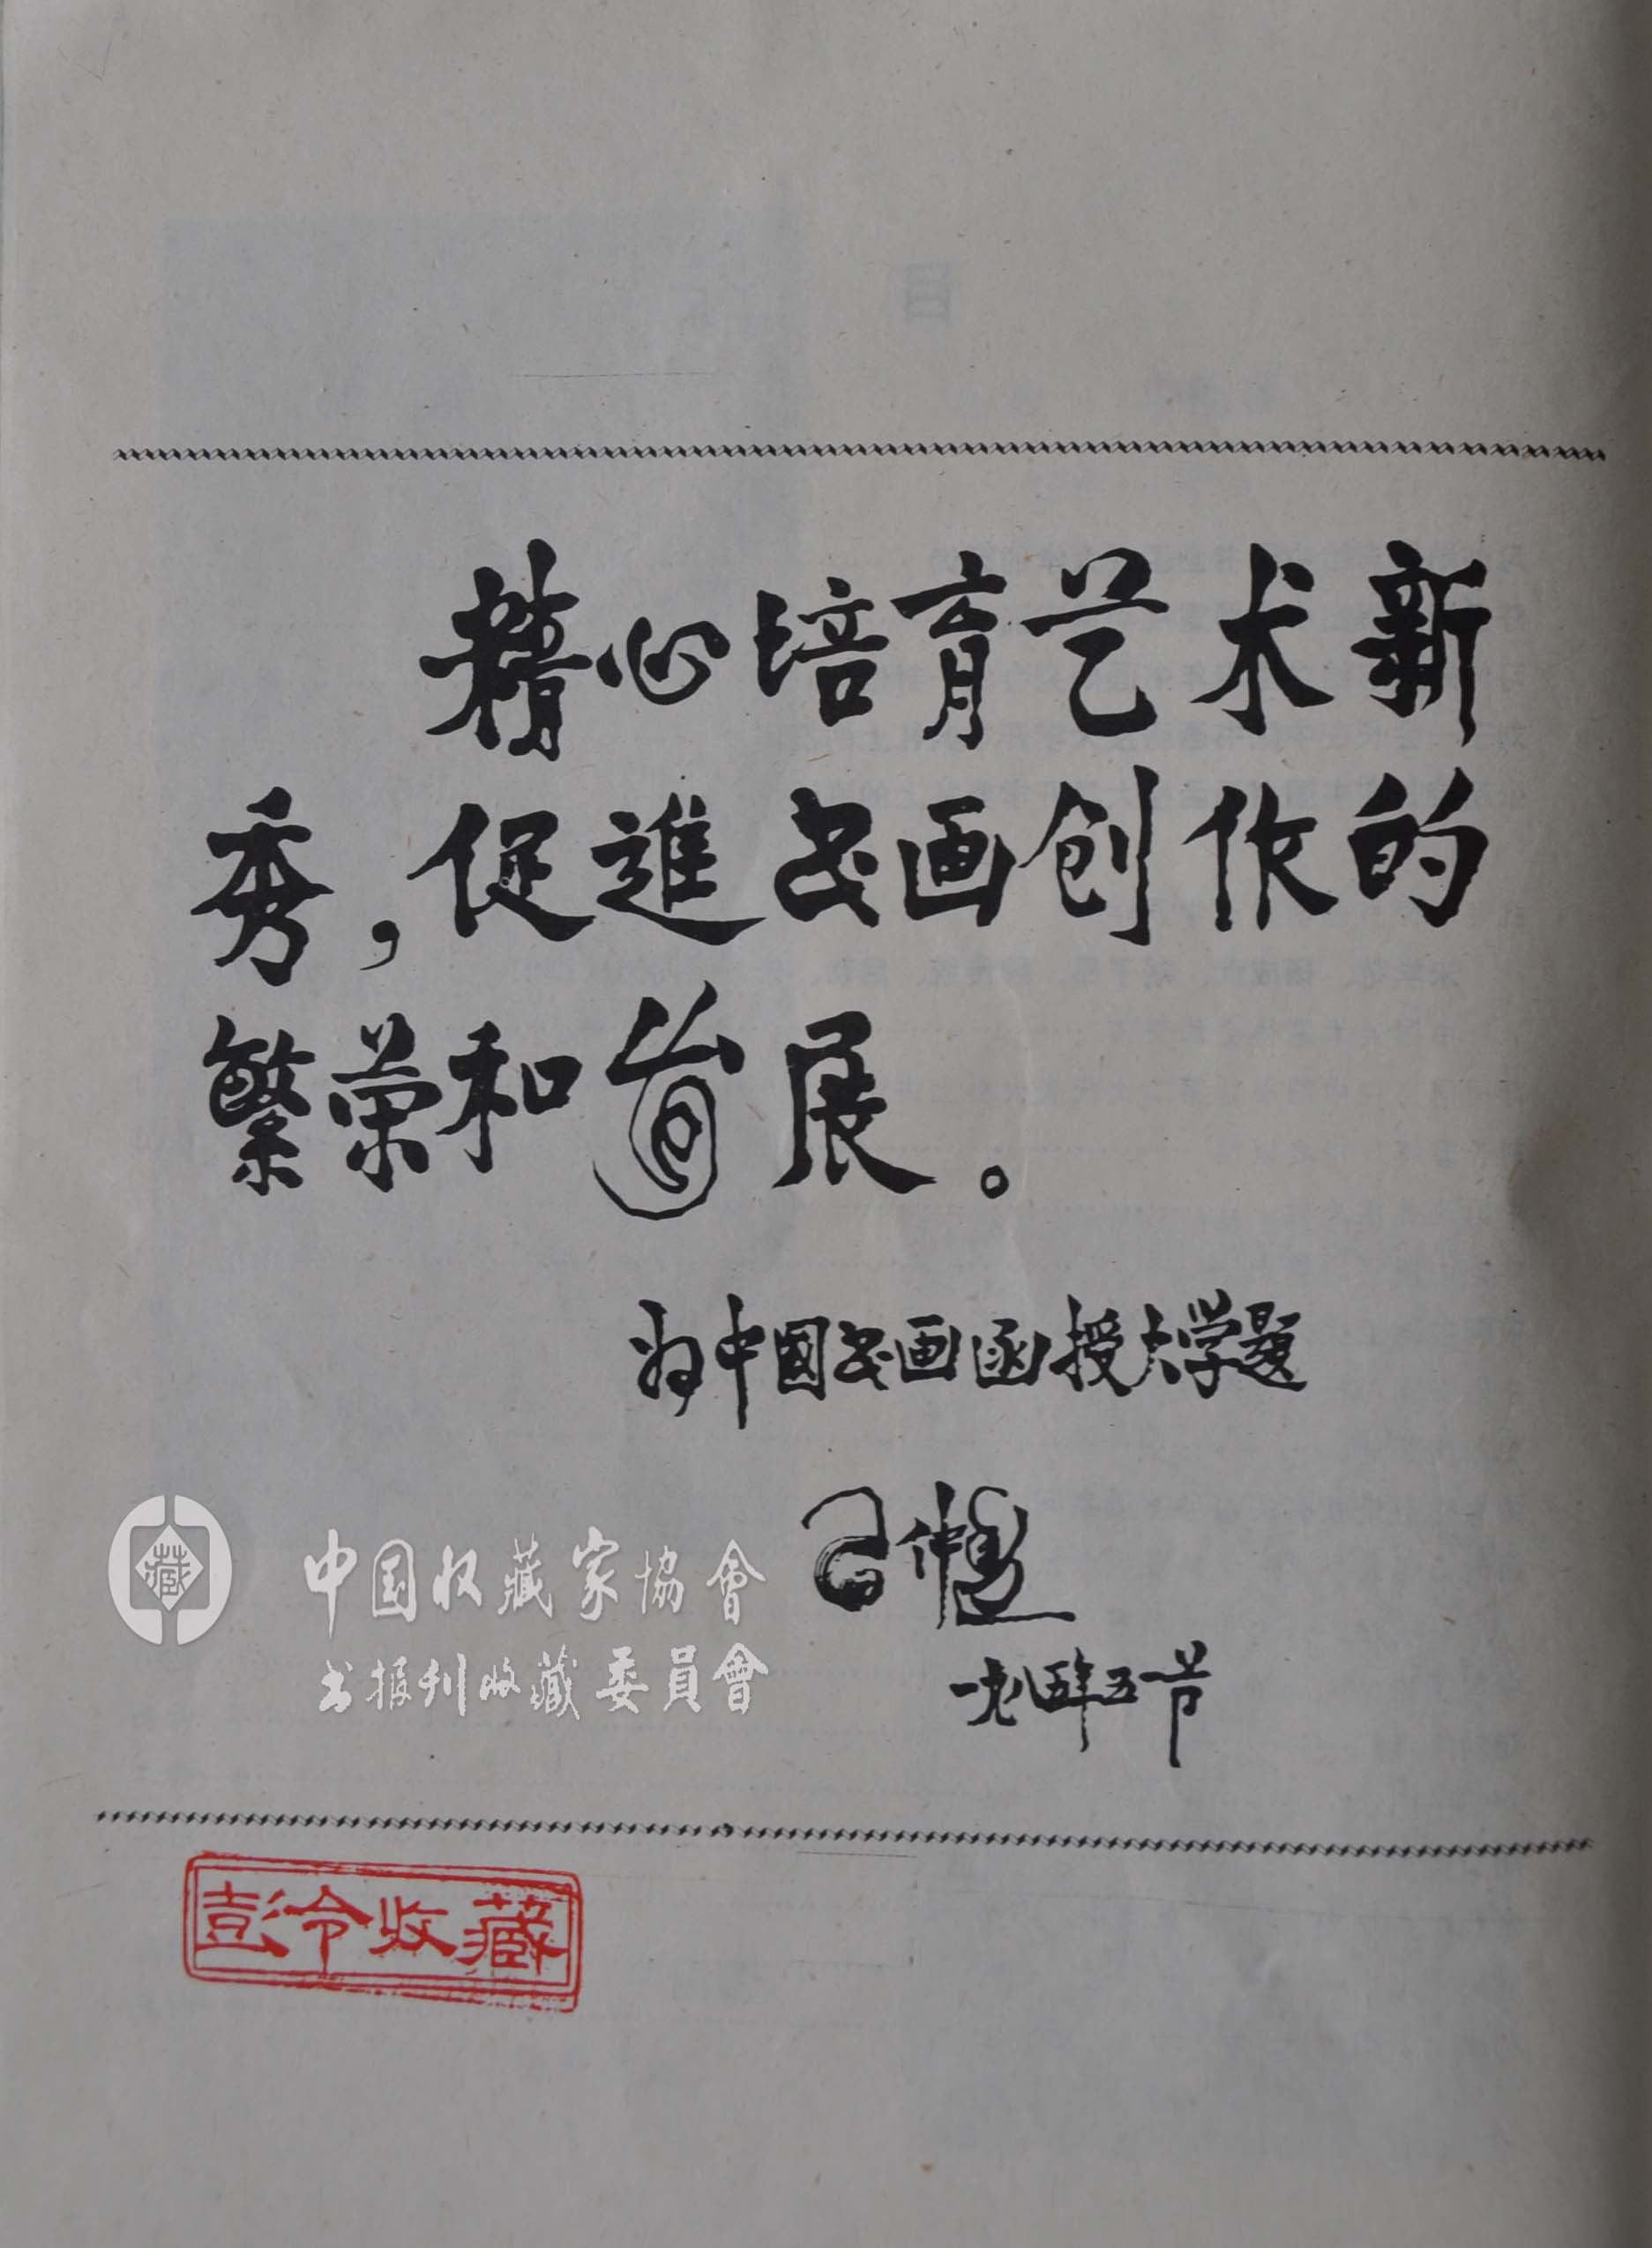 精心培育艺术新
秀，促進书画创作的
繁荣和发展。
为中国书画函授大学题
习仲勋
一九八五年五一节
中国收藏家協會
书报刊收藏委員會
藏
彭令收藏